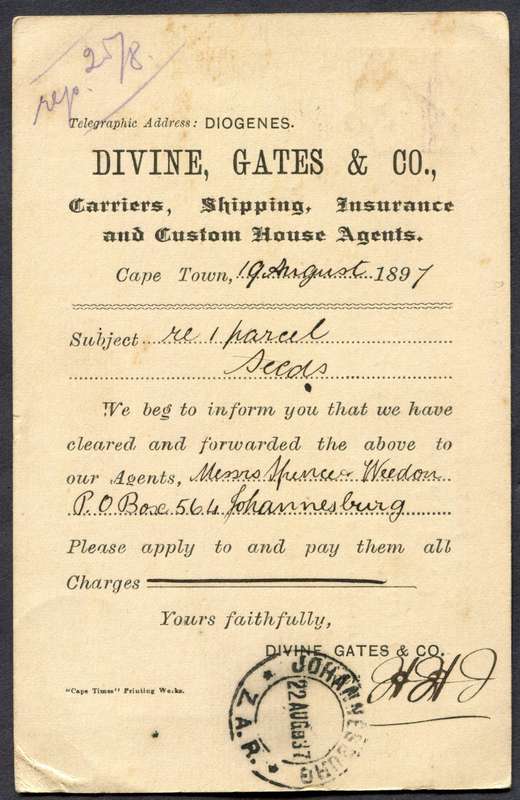 rep. 25/8.
Telegraphic Address: DIOGENES.
DIVINE, GATES & CO.,
Carriers, Shipping, Insurance
and Custom House Agents.
Cape Town, 19 August 1897
Subject re 1 parcel
Seeds
We beg to inform you that we have
cleared and forwarded the above to
our Agents, Messrs Spencer Weedon
P.O Box 564 Johannesburg
Please apply to and pay them all
Charges
Yours faithfully,
DIVINE, GATES & CO.
"Cape Times" Printing Works.
JOHANNESBURG
22 AUG
Z.A.R.